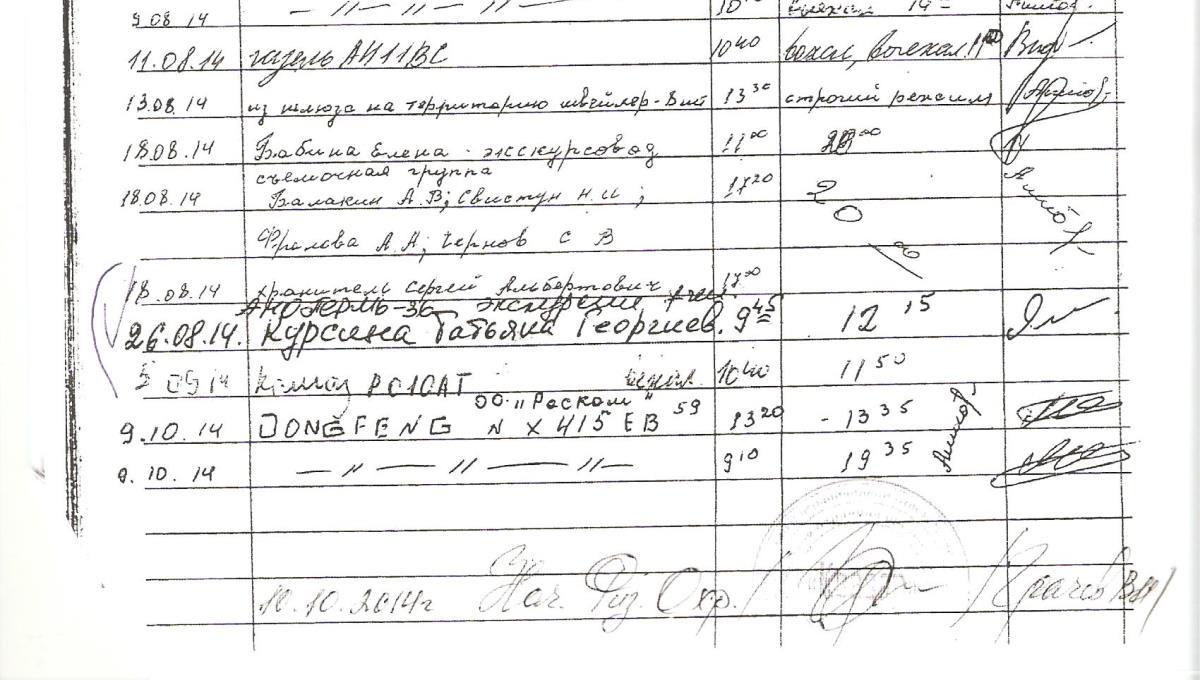 9.08.14 — // — // — //
11.08.14 газель АИ11ВС 10 40 выехал. 11
13.08.14 из шлюза на территорию швейлер- 13 30 строгий режим
18.08.14 Бабина Елена - экскурсовод 11 00
съемочная группа
18.08.14 Балакин А.В; Свистун Н.И; 17 20 20 00
Фролова А.А; Чернов С В
18.08.14 хранитель Сергей Альбертович 17 00
АНО ПЕРМЬ-36 экскурсия
26.08.14. Курсина Татьяна Георгиев. 9 45 12 15
5 09 14 Камаз Р010АТ 10 40 11 50
ОО "Роском"
9.10.14 DONGFENG N X 415 EB 59 13 20 - 13 35
9.10.14 — // — // — //— 9 10 19 35
10.10.2014г Нач. Физ. Охр.